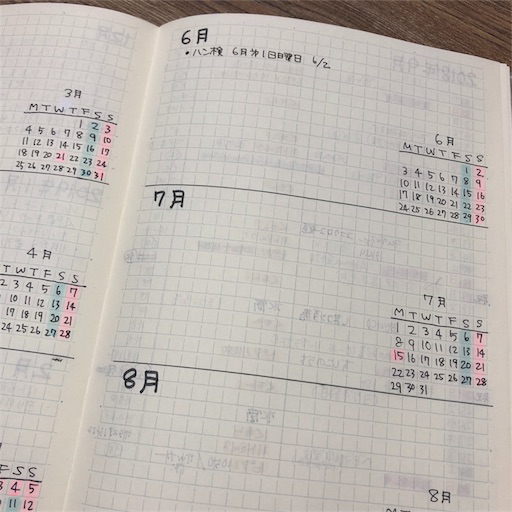 3月
M T W T F S S
1 2 3
4 5 6 7 8 9 10
11 12 13 14 15 16 17
18 19 20 21 22 23 24
25 26 27 28 29 30 31
4月
T W T F S S
2 3 4 5 6 7
9 10 11 12 13 14
17 18 19 20 21
24 25 26 27 28
F S S
3 4 5
11 12
6月
• ハン検 6月第1日曜日 6/2
6月
M T W T F S S
1 2
3 4 5 6 7 8 9
10 11 12 13 14 15 16
17 18 19 20 21 22 23
24 25 26 27 28 29 30
7月
7月
M T W T F S S
1 2 3 4 5 6 7
8 9 10 11 12 13 14
15 16 17 18 19 20 21
22 23 24 25 26 27 28
29 30 31
8月
8月